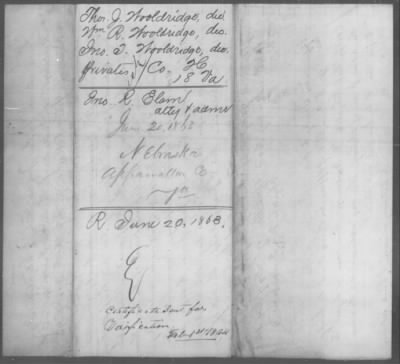 Thos. J. Wooldridge, dec.
Wm R. Wooldridge, dec.
Jno. T. Wooldridge, dec.
Privates Co. H
18 Va
Jno. R. Elam
atty & admr
June 20, 1863
Nebraska
Appomattox C
Va
R. June 20, 1863.
Certificate Sent for
Verification